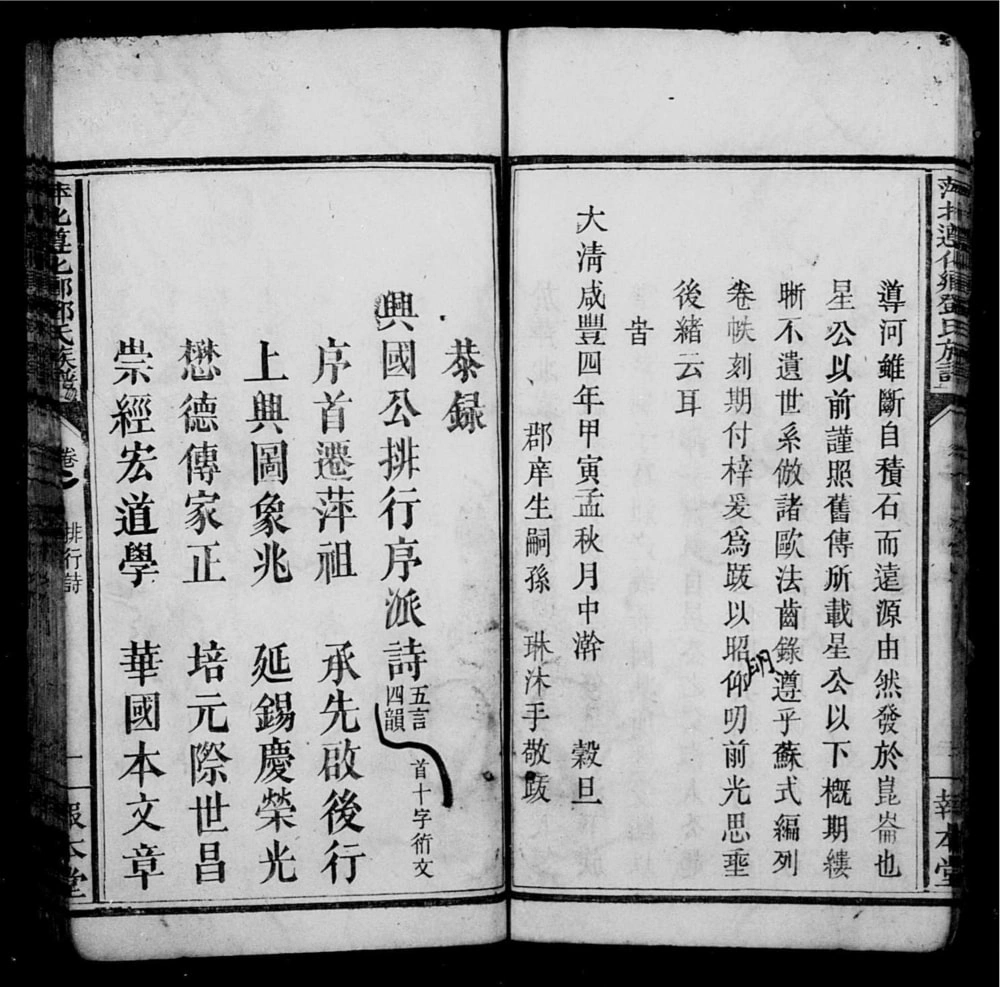 萍北遵化鄉鄧氏族譜
報本堂
導河雖斷自積石而遠源由然發於崑崙也
星公以前謹照舊傳所載星公以下概期縷
晰不遺世系倣諸歐法齒錄遵乎蘇式編列
卷帙刻期付梓爰爲跋以昭明仰叨前光思垂
後緒云耳
旹
大淸咸豐四年甲寅孟秋月中澣 穀旦
郡庠生嗣孫 琳沐手敬跋
恭録
興國公排行序派詩 五言四韻 首十字衍文
序首遷萍祖 承先啟後行
上興圖象兆 延錫慶榮光
懋德傳家正 培元際世昌
崇經宏道學 華國本文章
萍北遵化鄉鄧氏族譜
卷
排行詩
一
報本堂